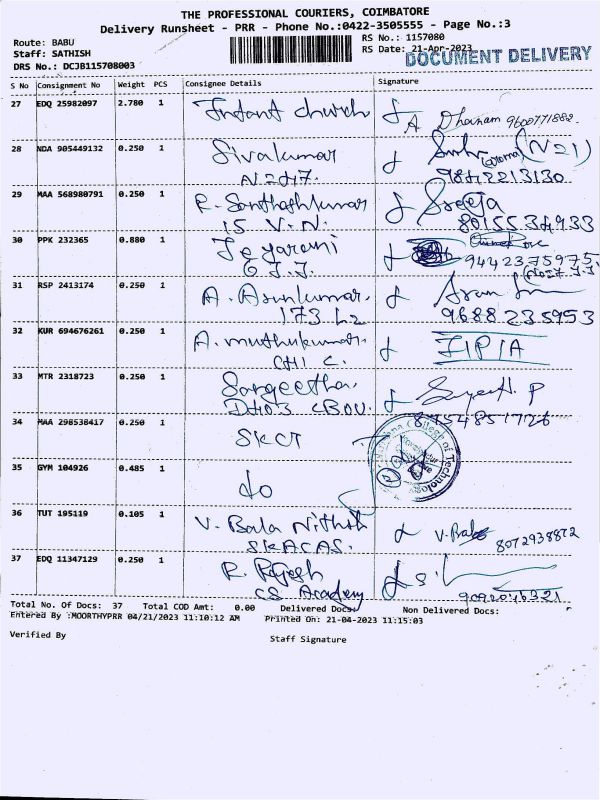 THE PROFESSIONAL COURIERS, COIMBATORE
Delivery Runsheet - PRR - Phone No.:0422-3505555 - Page No.:3
Route: BABU
RS No.: 1157080
Staff: SATHISH
RS Date: 21-Apr-2023
DOCUMENT DELIVERY
DRS No.: DCJB115708003
S No Consignment No Weight PCS Consignee Details Signature
27 EDQ 25982097 2.780 1 Infant church
A Dhanam 9600771882.
28 NDA 905449132 0.250 1 Sivakumar
(N21)
9842213130
29 MAA 568980791 0.250 1 R. Santhoshkumar Sreeja
15 V.N. 8015534933
30 PPK 232365 0.880 1 Jeyarani
6 J.J. 9442375975
31 RSP 2413174 0.250 1 A. Arunkumar.
173 L2 9688235953
32 KUR 694676261 0.250 1 A. muthukumar.
33 MTR 2318723 0.250 1 Sangeetha.
8754851726
34 MAA 298538417 0.250 1 SKCT
College of Technology
35 GYM 104926 0.485 1 do
36 TUT 195119 0.105 1 V. Bala Nithish V. Bala
SKACAS. 8072938872
37 EDQ 11347129 0.250 1 R. Rajesh
CS Academy 9092046321
Total No. Of Docs: 37 Total COD Amt: 0.00 Delivered Docs: Non Delivered Docs:
Entered By :MOORTHYPRR 04/21/2023 11:10:12 AM Printed On: 21-04-2023 11:15:03
Verified By Staff Signature